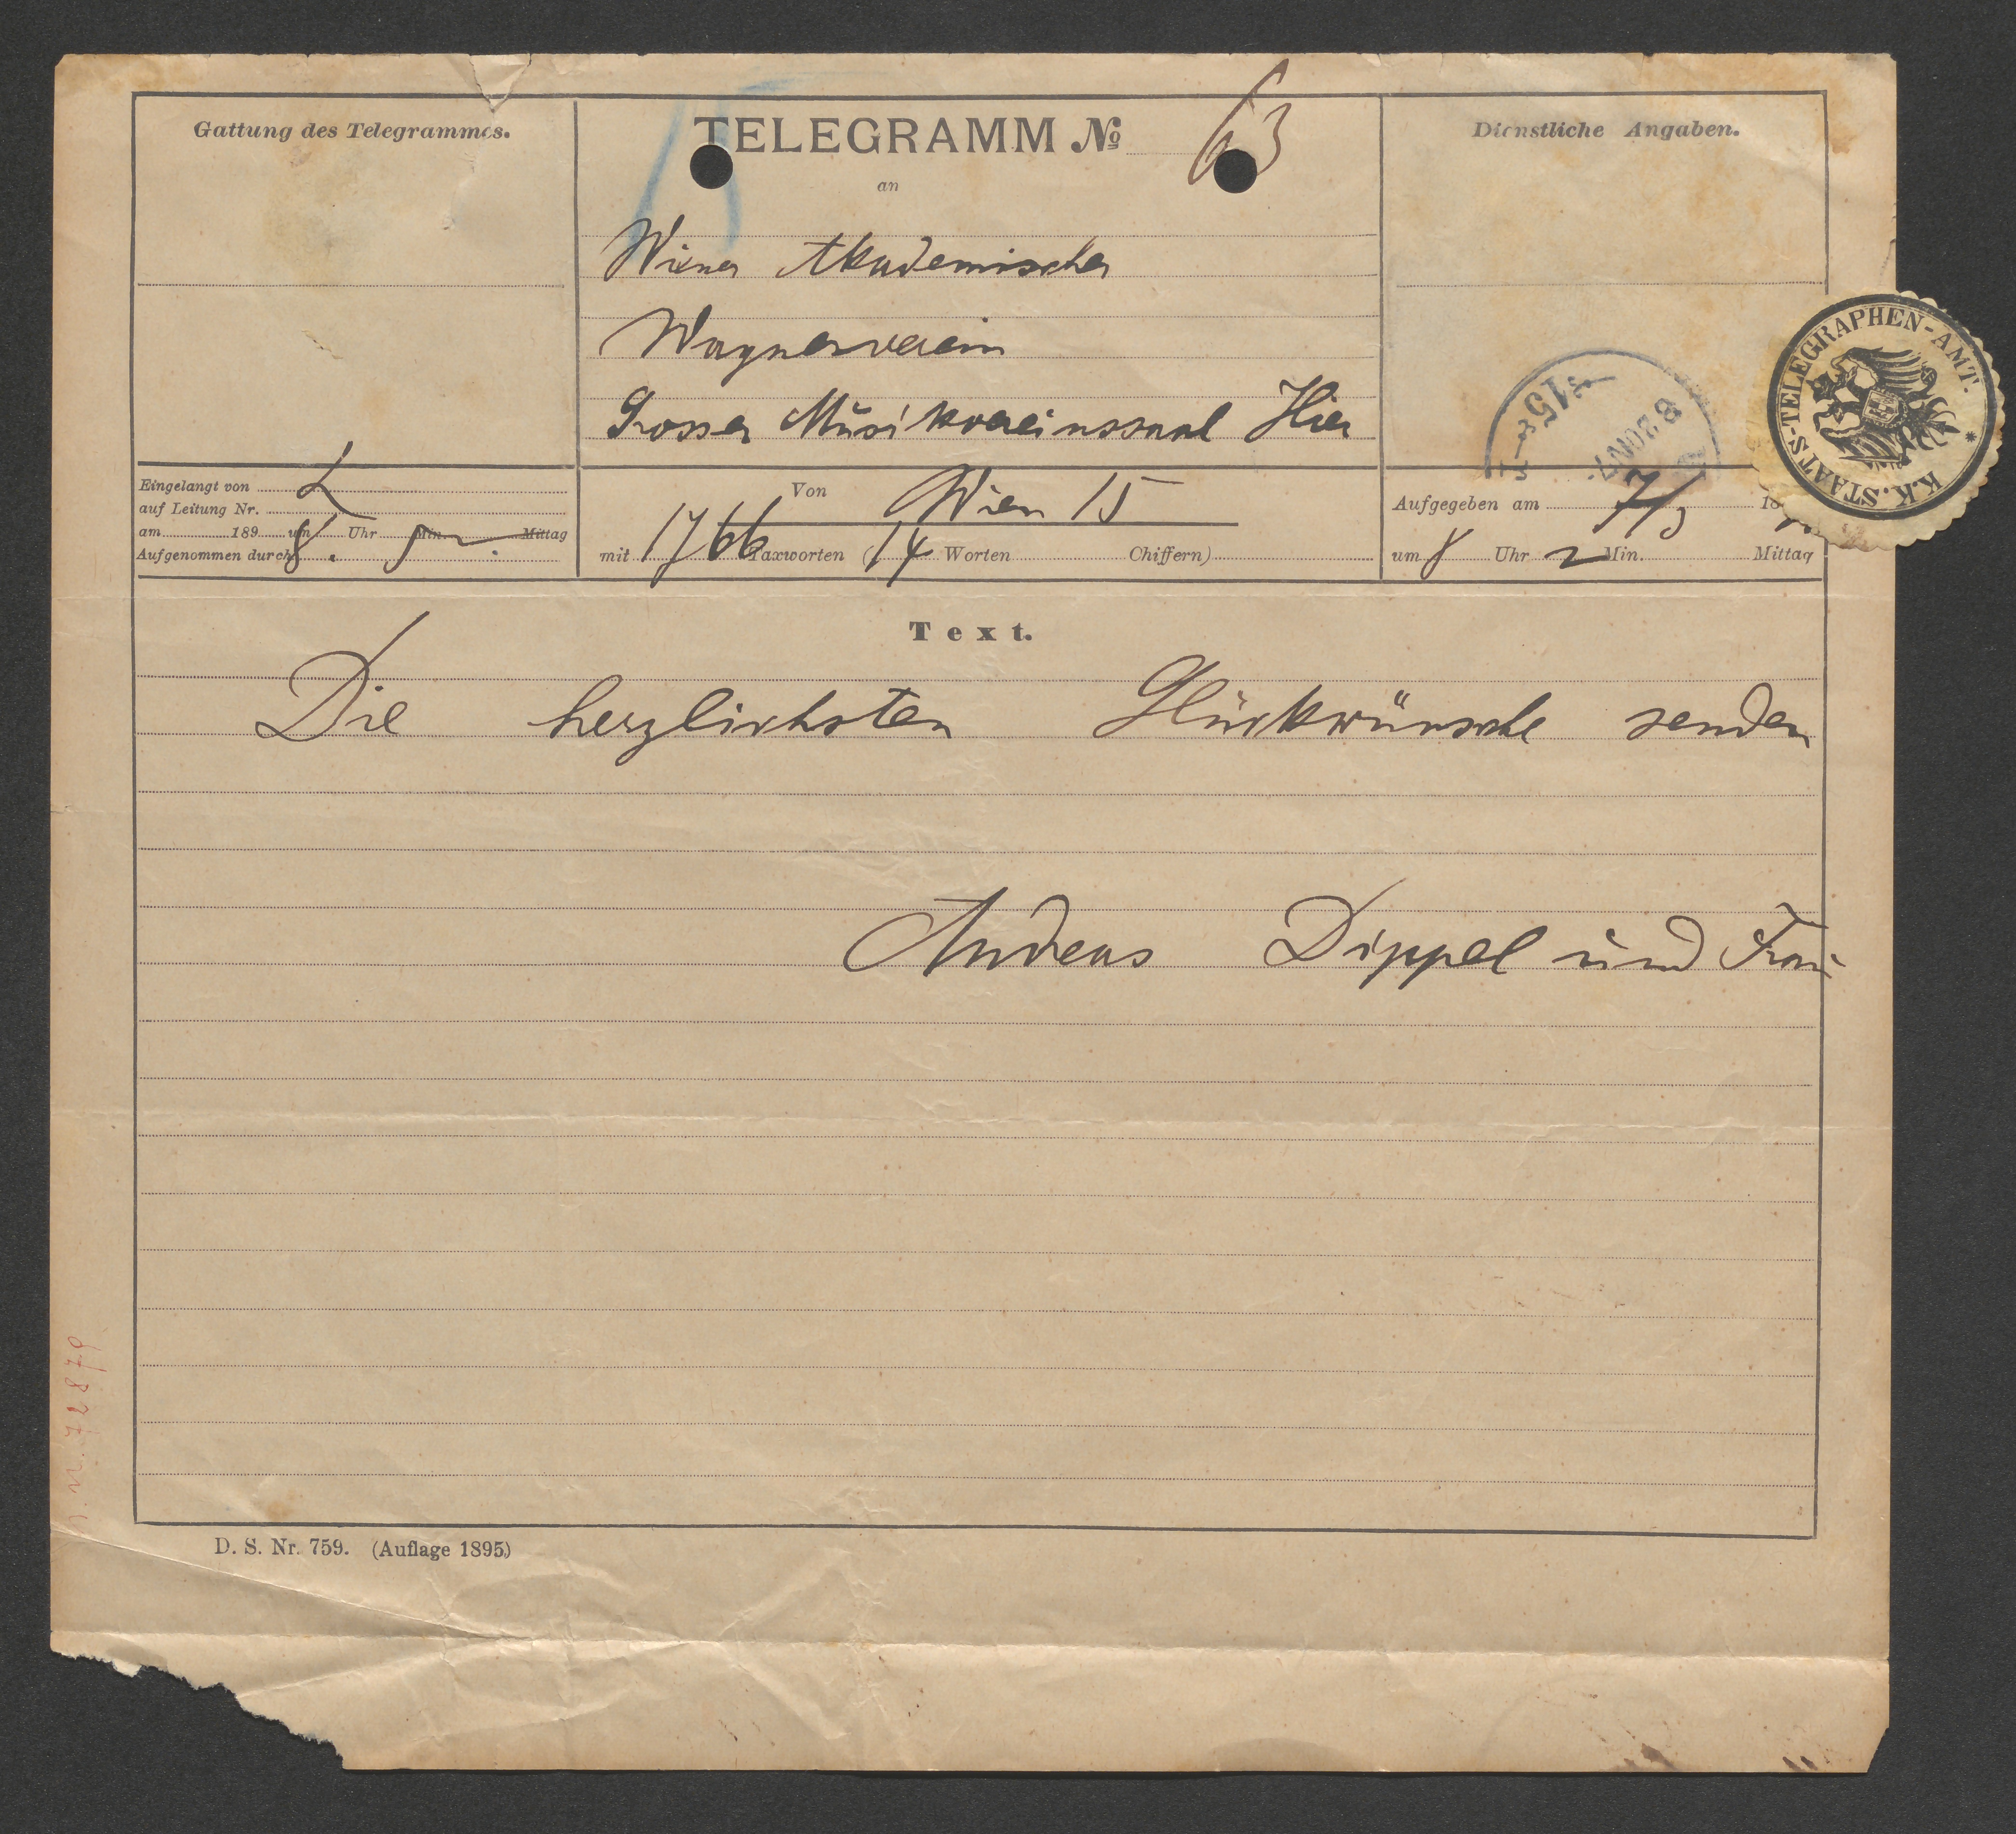 Gattung des Telegrammes.
TELEGRAMM No 63
an
Dienstliche Angaben.
Wiener Akademischer
Wagnerverein
Grosser Musikvereinssaal Hier
K.K. STAATS-TELEGRAPHEN-AMT. *
Eingelangt von
auf Leitung Nr.
am 189 um 8 Uhr Min. Mittag
Aufgenommen durch
Von Wien 15
mit 1766 Taxworten (14 Worten Chiffern)
Aufgegeben am 7/3 18
um 8 Uhr 2 Min. Mittag
Text.
Die herzlichsten Glückwünsche senden
Andreas Dippel und Frau
D. S. Nr. 759. (Auflage 1895)